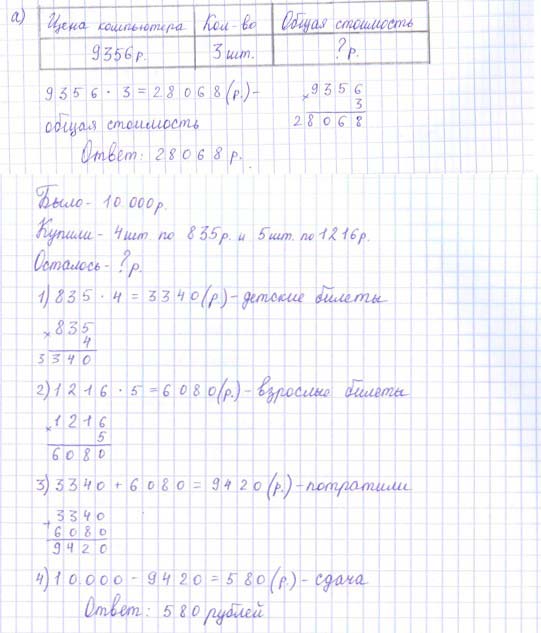 а) Цена компьютера Кол-во Общая стоимость
9356 р. 3 шт. ? р.
9356 · 3 = 28068 (р.) - × 9356
3
общая стоимость 28068
Ответ: 28068 р.
Было - 10 000 р.
Купили - 4 шт. по 835 р. и 5 шт. по 1216 р.
Осталось - ? р.
1) 835 · 4 = 3340 (р.) - детские билеты
× 835
4
3340
2) 1216 · 5 = 6080 (р.) - взрослые билеты
× 1216
5
6080
3) 3340 + 6080 = 9420 (р.) - потратили
+ 3340
6080
9420
4) 10.000 - 9420 = 580 (р.) - сдача
Ответ: 580 рублей